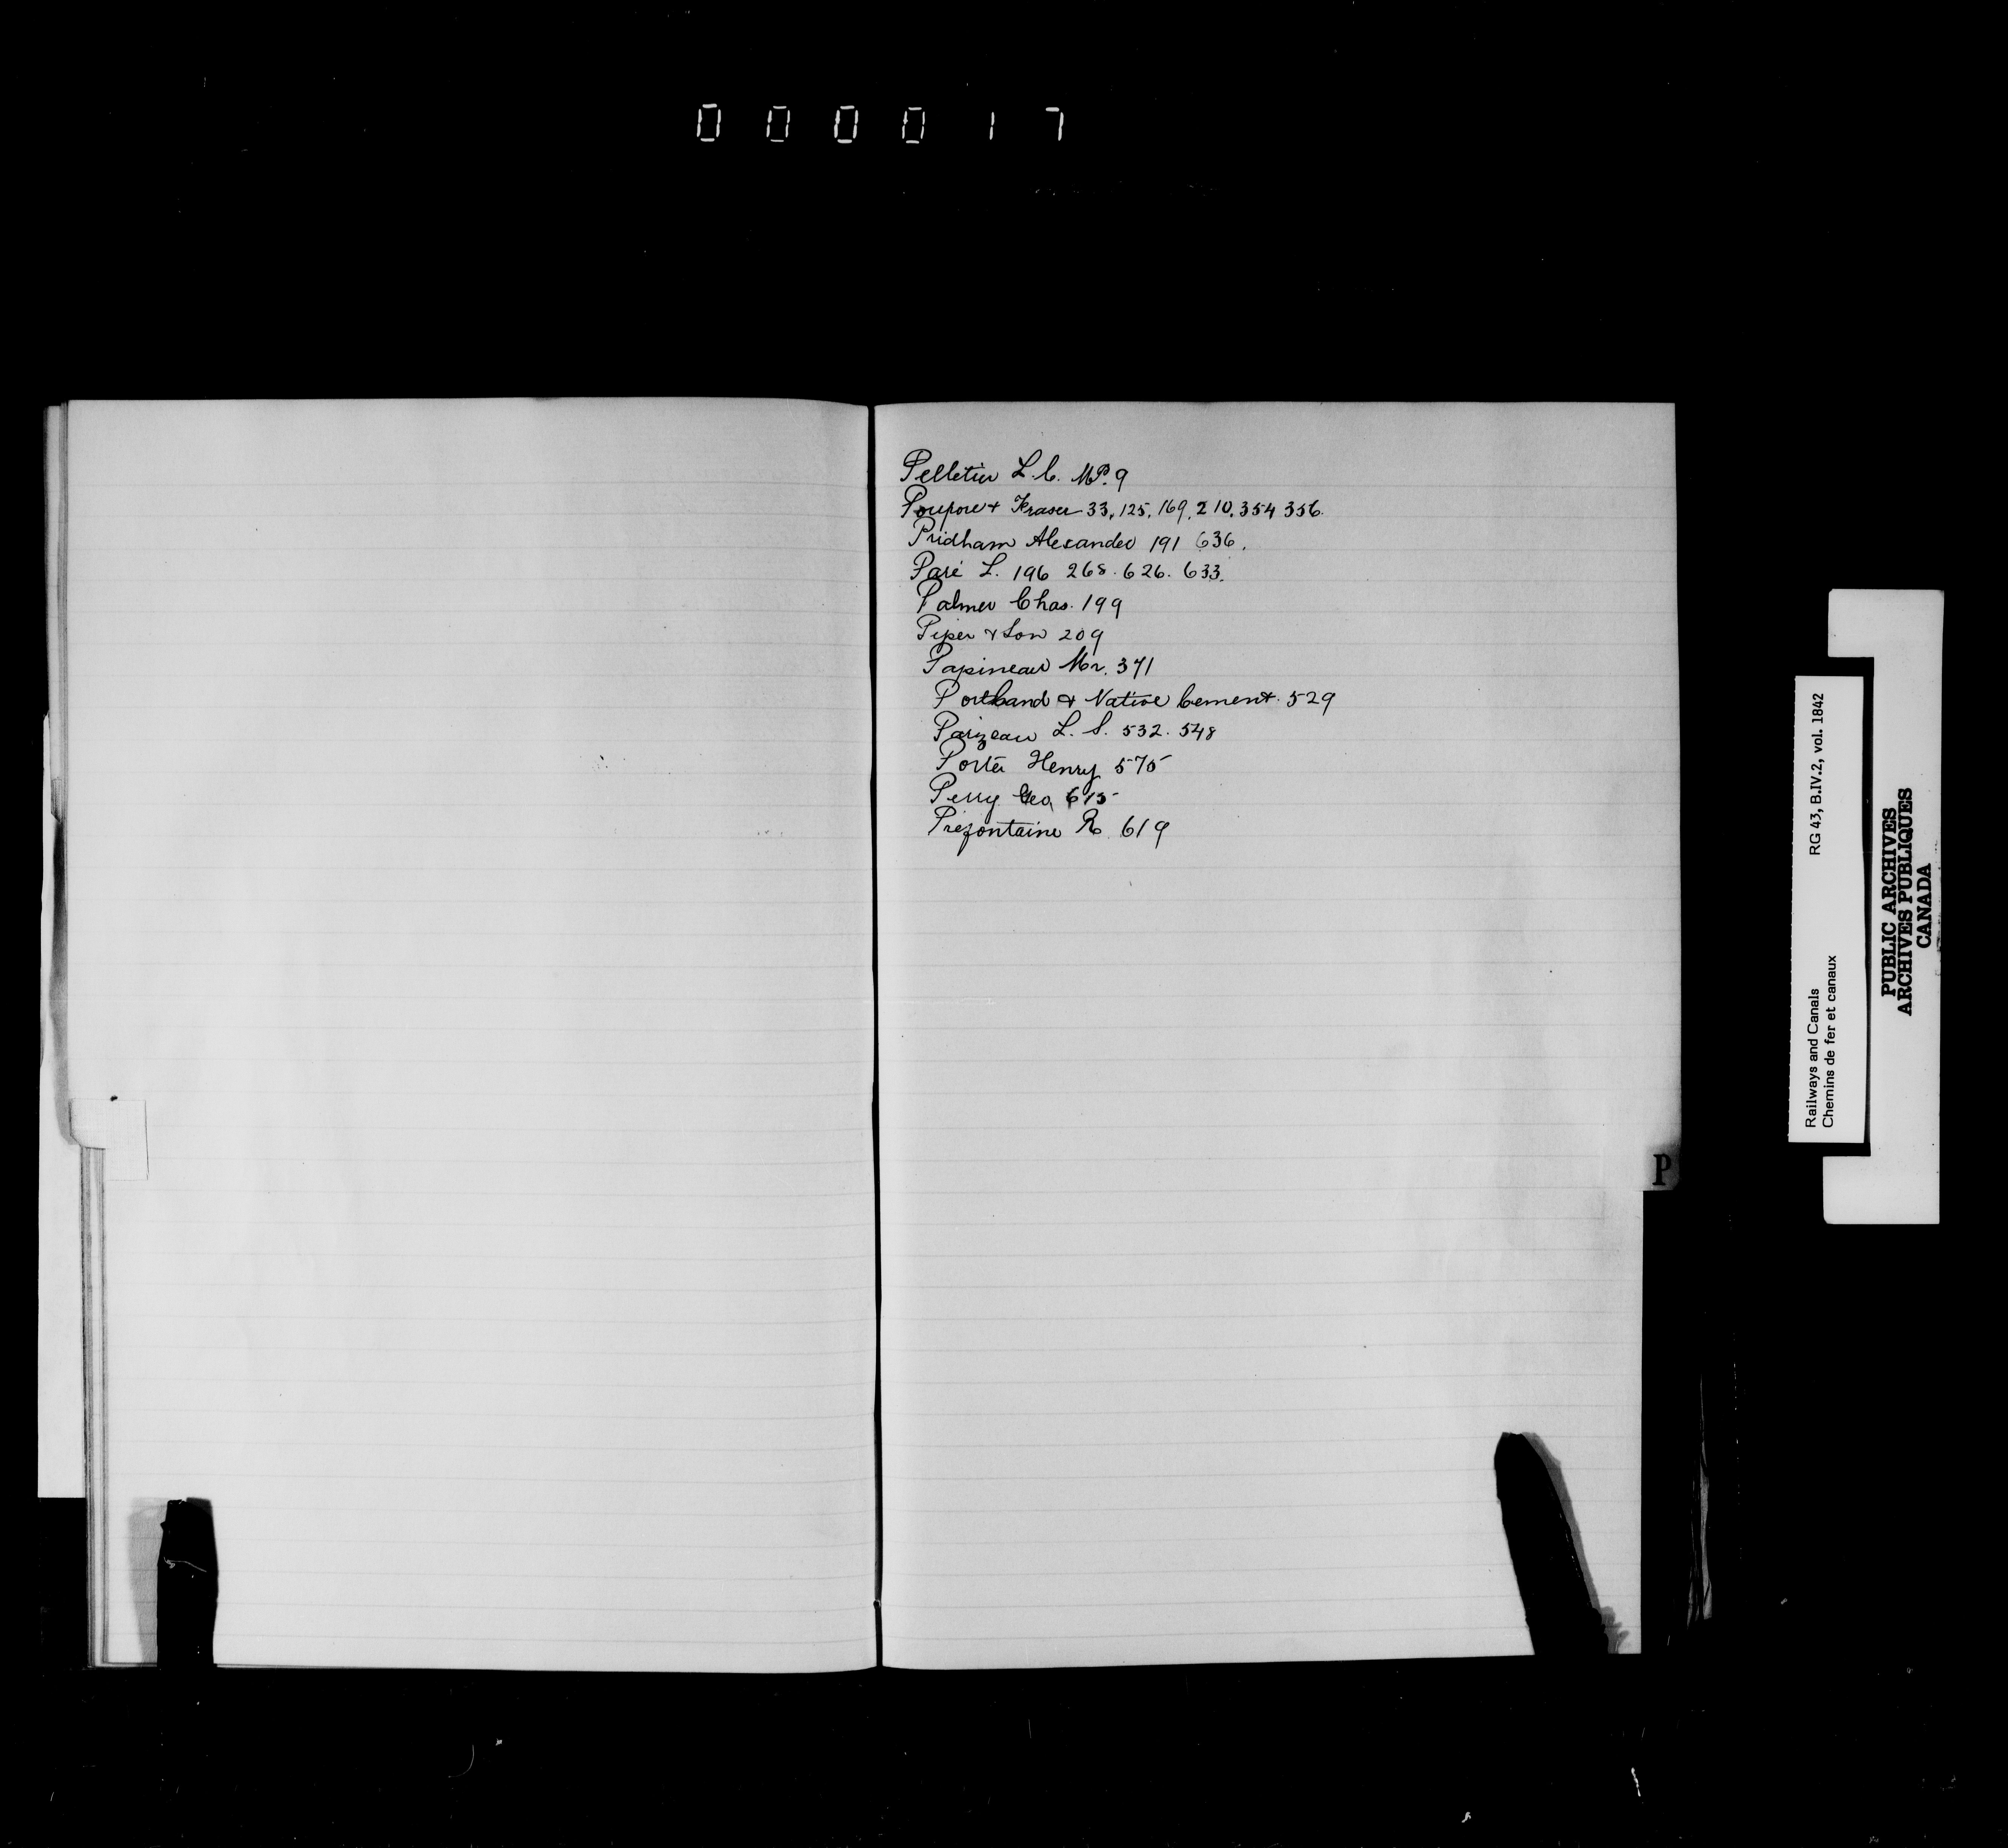 000017
Pelletier L.C. M.P. 9
Poupore & Fraser 33, 125, 169, 210, 354 356.
Pridham Alexander 191 636.
Paré L. 196 268. 626. 633.
Palmer Chas. 199
Piper & Son 209
Papineau Mr. 371
Portland & Native Cement. 529
Parizeau L. S. 532. 548
Porter Henry 575
Perry Geo. 615
Prefontaine R. 619
P
Railways and Canals RG 43, B.IV.2, vol. 1842
Chemins de fer et canaux
PUBLIC ARCHIVES
ARCHIVES PUBLIQUES
CANADA